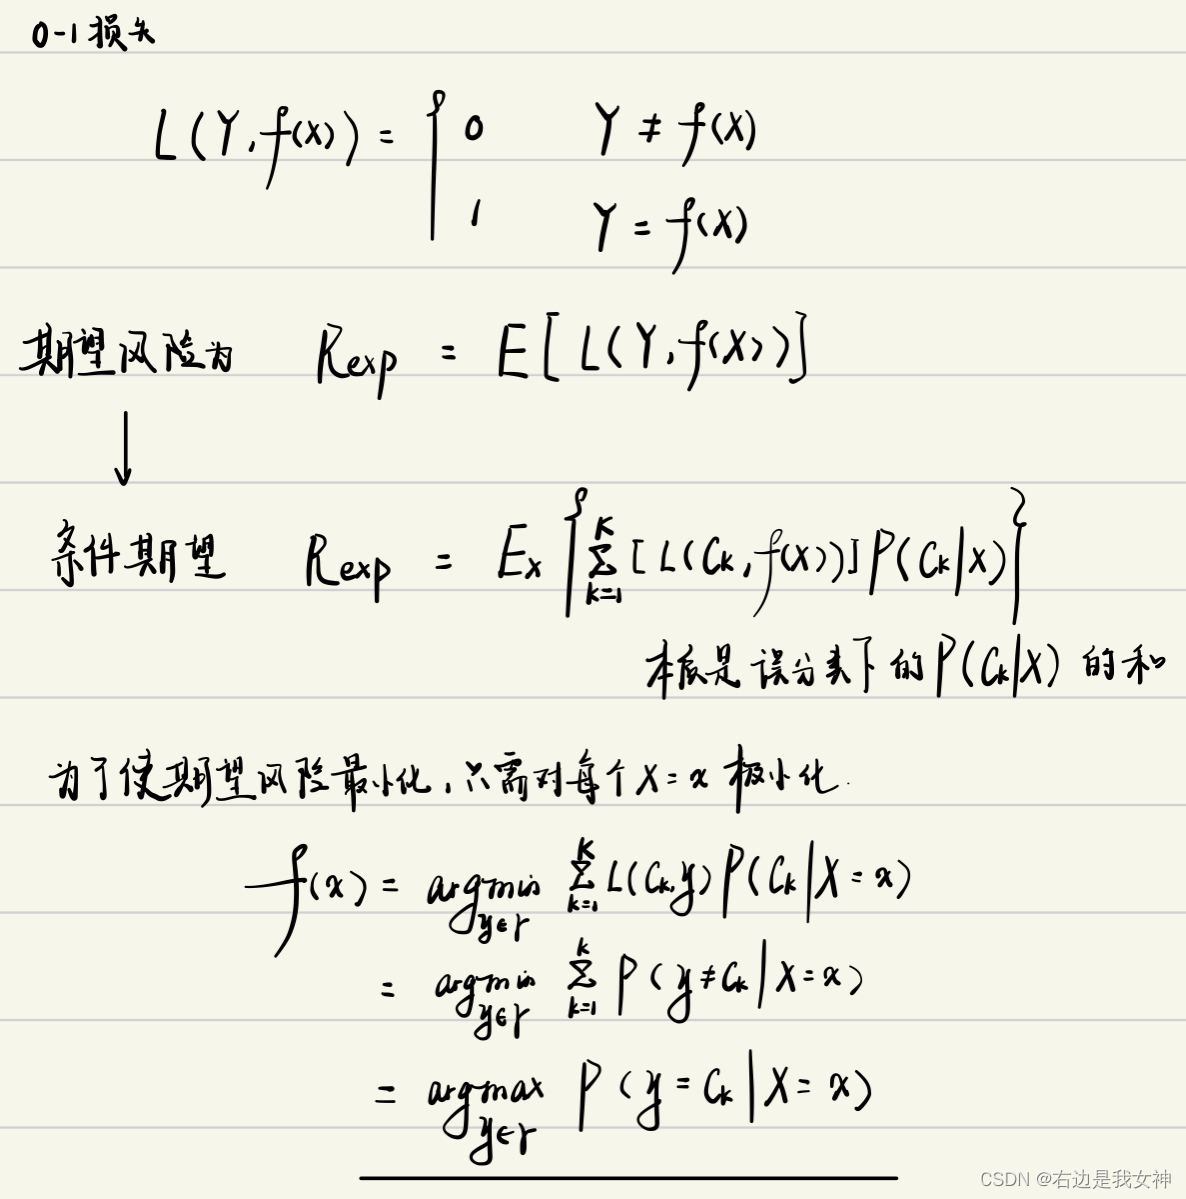 0-1损失
L(Y,f(X)) = { 0 Y ≠ f(X)
1 Y = f(X)
期望风险为 Rexp = E[L(Y,f(X))]
↓
条件期望 Rexp = Ex{∑k=1K[L(Ck,f(X))]P(Ck|X)}
本质是误分类下的P(Ck|X)的和
为了使期望风险最小化,只需对每个X=x极小化.
f(x) = argmin y∈Y ∑k=1K L(Ck,y)P(Ck|X=x)
= argmin y∈Y ∑k=1k P(y≠Ck|X=x)
= argmax y∈Y P(y=Ck|X=x)
CSDN @右边是我女神